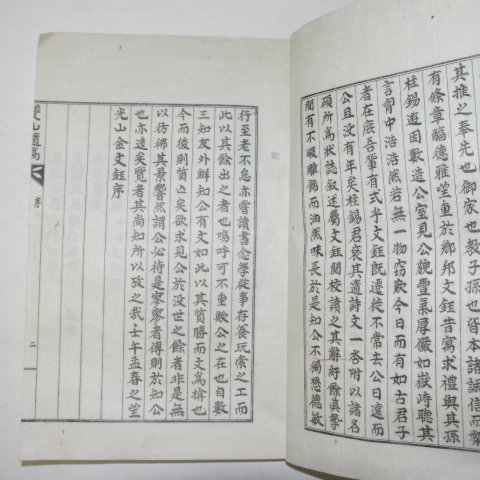 其推之奉先也御家也敎子孫也皆本諸誠信而菜
有條章醇德雅望重於鄕邦文鈺昔寓求禮與其孫
桂錫遊因數造公室見公貌豊氣厚儼如嶽峙聽其
言胷中浩浩然若無一物窃歎今日而有如古君子
者在底吾輩有式乎文鈺旣遷徙不常去公日遠而
公且沒有年矣桂錫君裒其遺詩文一卷附以諸名
碩所爲狀誌叙述屬文鈺閱校讀之其辭紆餘眞摯
間有不暇雕飾而油然味長於是知公不獨懋德敏
行至老不怠亦嘗讀書念學從事存養玩索之工而
此以其餘出之者也嗚呼可不重歟公之在也自數
三知友外鮮知公有文如此以其質勝而文爲揜也
今而後則質亡矣欲求見公於沒世之餘者非是無
以彷彿其景響然謂公必待是寥寥者傳則於知公
也亦遠矣覽者其尚知所以攷之哉壬午孟春之望
光山金文鈺序
山遺稿
序
二